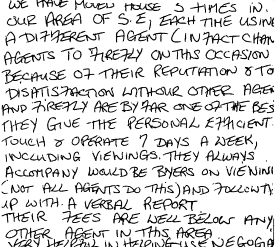 WE HAVE MOVED HOUSE 5 TIMES IN
OUR AREA OF S.E, EACH TIME USIN
A DIFFERENT AGENT (IN FACT CHAN
AGENTS TO FIREFLY ON THIS OCCASION
BECAUSE OF THEIR REPUTATION & TO
DISATISFACTION WITH OUR OTHER AGEN
AND FIREFLY ARE BY FAR ONE OF THE BES
THEY GIVE THE PERSONAL EFFICIENT
TOUCH & OPERATE 7 DAYS A WEEK,
INCLUDING VIENINGS. THEY ALWAYS
ACCOMPANY WOULD BE BYERS ON VIENIN
(NOT ALL AGENTS DO THIS) AND FOLLOW
UP WITH A VERBAL REPORT.
THEIR FEES ARE WELL BELOW ANY
OTHER AGENT IN THIS AREA
VERY HELPFUL IN HELPING US NEGOGIA